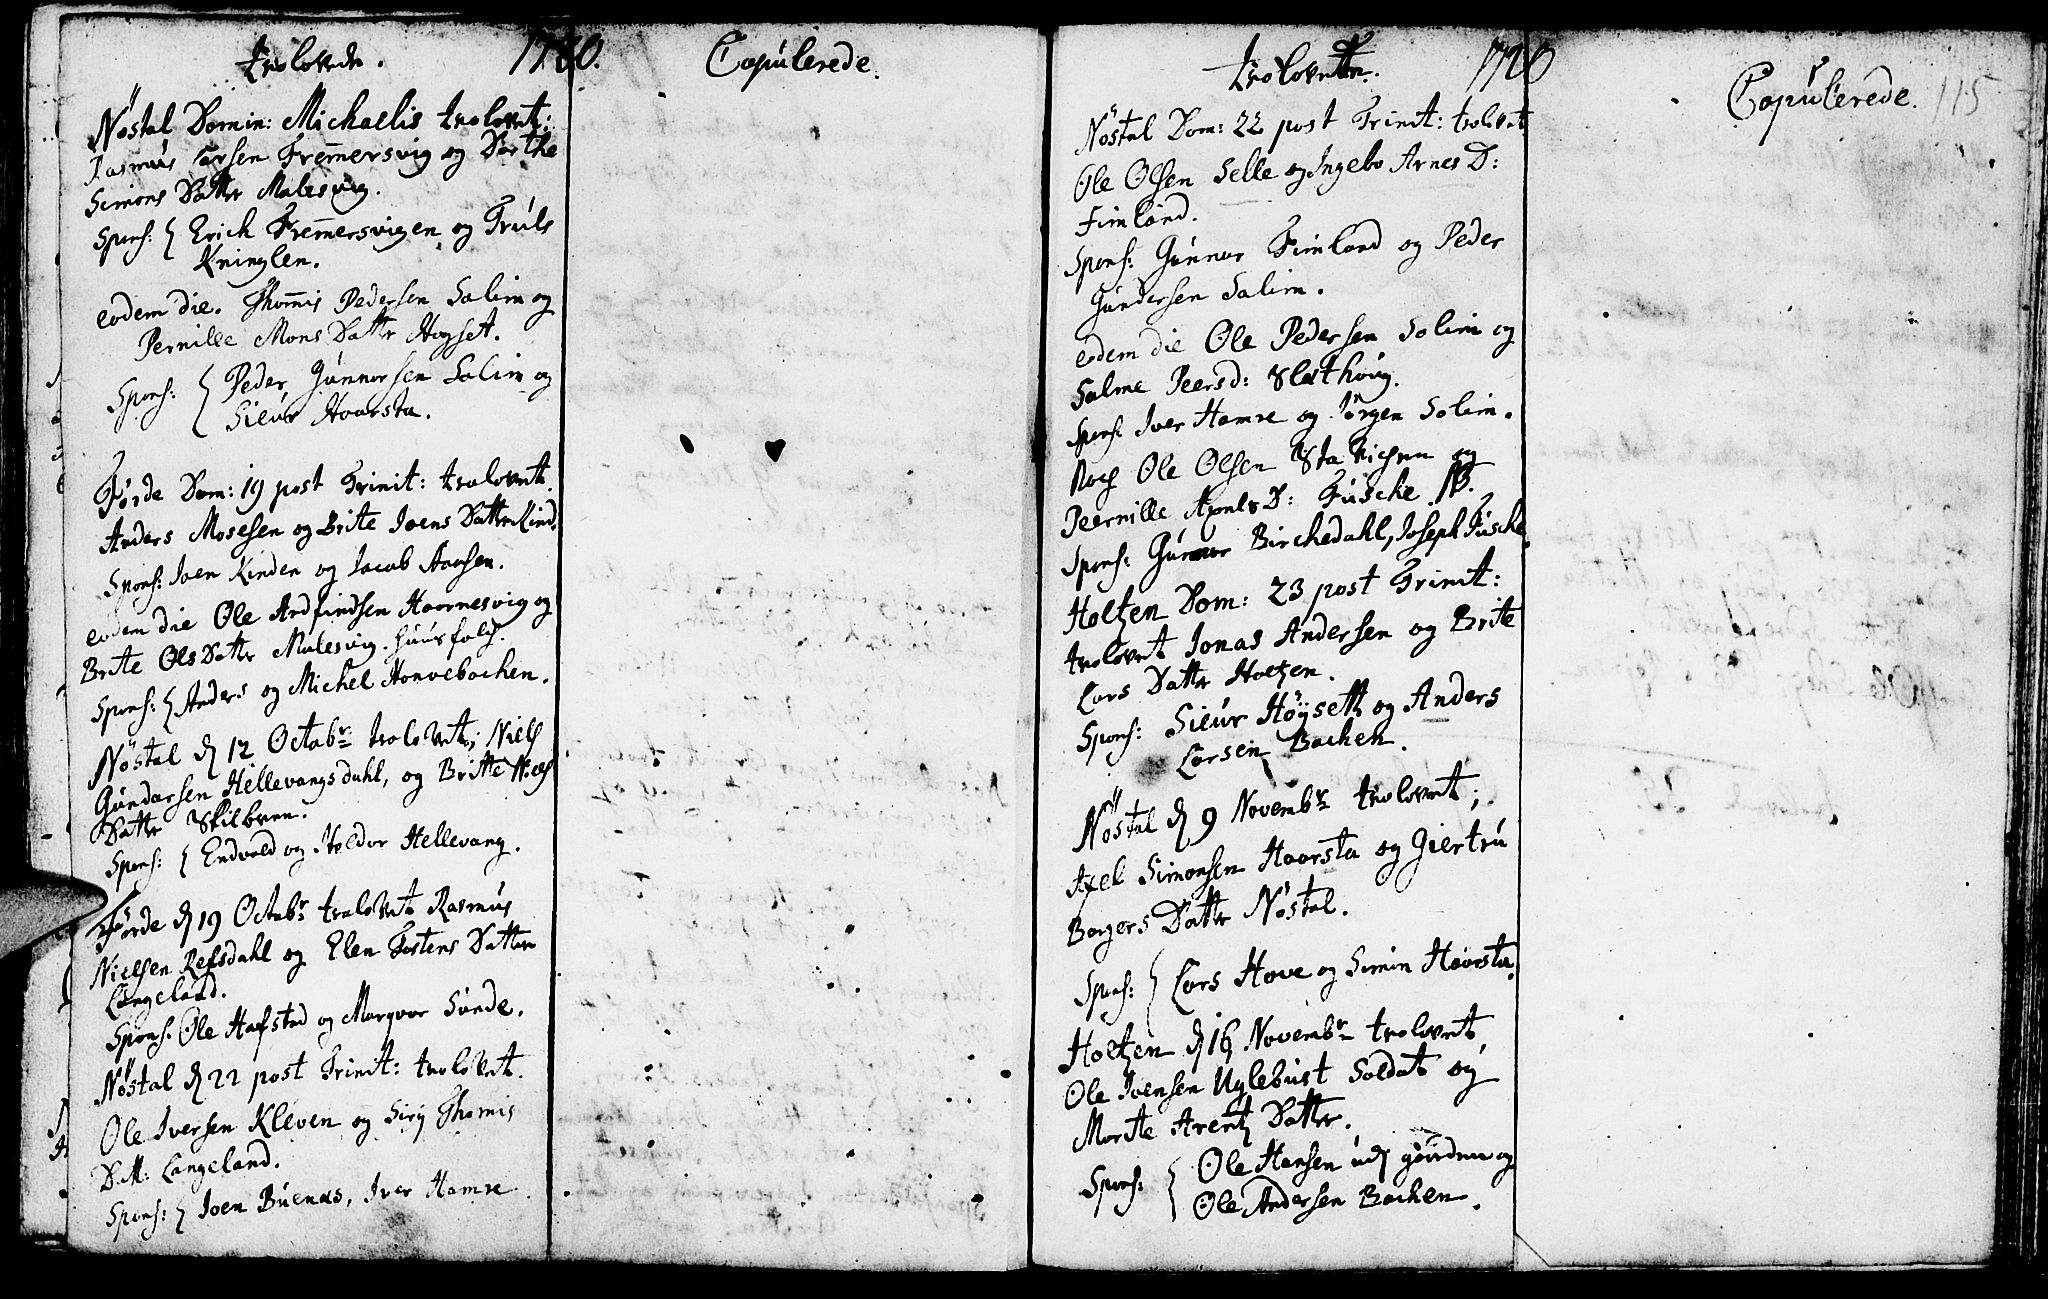 trolovede. 1760. Copulerede.
Nöstal Domin: Michaelis trolovet:
Rasmus Larsen Fremmersvig og Dorthe
Simons Datter Malesvig.
Spons: Erich Fremmersvigen og Truls
Kringlen.
eodem die. Thomis Pedersen Solim og
Pernille Mons Datter Hogset.
Spons: Peder Gunnersen Solim og
Sieur Hoarsta.
Förde Dom: 19 post Trinit: trolovet.
Anders Mosessen og Brite Joens Datter Kind.
Spons: Joen Kinden og Jacob Hansen.
eodem die Ole Andfindsen Hoornesvig og
Brite Ols Datter Malesvig. huusfolch.
Spons: Anders og Michel Honvebachen.
Nöstal d 12 Octobr: trolovet; Niels
Gundersen Hellevangsdahl, og Britte Niels
Datter Skilbreen.
Spons: Endvold og Haldor Hellevang.
Förde d 19 Octobr: trolovet Rasmus
Nielsen Refsdahl og Elen Tostens Datter
Langeland.
Spons: Ole Hafstad og Marqvor Sunde.
Nöstal d 22 post Trinit: trolovet.
Ole Iversen Kleven og Siry Thomis
D.M: Langeland.
Spons: Joen Buenes, Iver Hamre.
trolovede. 1760 Copulerede. 115
Nöstal Dom: 22 post Trinit: trolovet
Ole Olsen Selle og Ingebo Arnes D:
Fimland.
Spons: Gunnar Fimland og Peder
Gundersen Solim.
eodem die Ole Pedersen Solim og
Salme Peersd: Slethoug.
Spons: Iver Hamre og Jörgen Solim.
Noch Ole Olsen og
Peernille D: Fusche
Spons: Gunnar Birchedahl, Joseph Fusche.
Holtzen Dom: 23 post Trinit:
trolovet Jonas Andersen og Brite
Lars Datter Holtzen.
Spons: Sieur Höyseth og Anders
Larsen Bachen.
Nöstal d 9 Novembr: trolovet;
Axel Simonsen Hoorsta og Giertru
Borgers Datter Nöstal.
Spons: Lars Hove og Simin Hoorsta.
Holtzen d 16 Novembr: trolovet
Ole Ivensen Uglebust Soldat og
Marite Arentz Datter.
Spons: Ole Hansen udj giorden og
Ole Andersen Bachen.